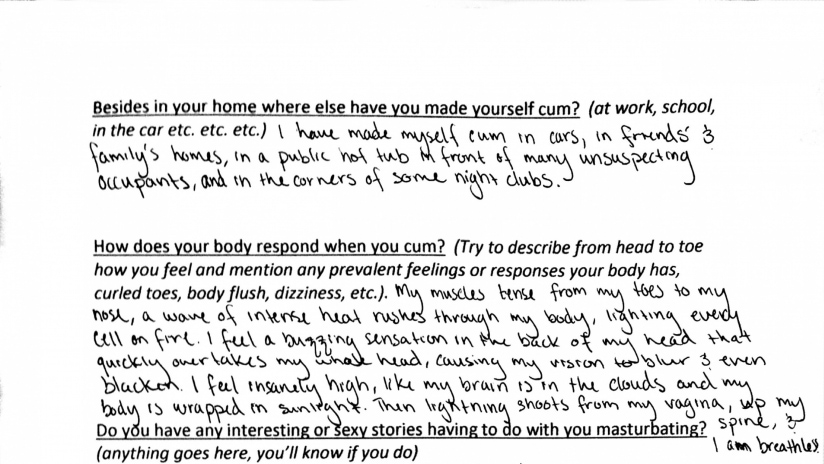 Besides in your home where else have you made yourself cum? (at work, school,
in the car etc. etc. etc.) I have made myself cum in cars, in friends' &
family's homes, in a public hot tub in front of many unsuspecting
occupants, and in the corners of some night clubs.
How does your body respond when you cum? (Try to describe from head to toe
how you feel and mention any prevalent feelings or responses your body has,
curled toes, body flush, dizziness, etc.). My muscles tense from my toes to my
nose, a wave of intense heat rushes through my body, lighting every
cell on fire. I feel a buzzing sensation in the back of my head that
quickly overtakes my whole head, causing my vision to blur & even
blacken. I feel insanely high, like my brain is in the clouds and my
body is wrapped in sunlight. Then lightning shoots from my vagina, up my
spine, &
Do you have any interesting or sexy stories having to do with you masturbating?
I am breathless
(anything goes here, you'll know if you do)